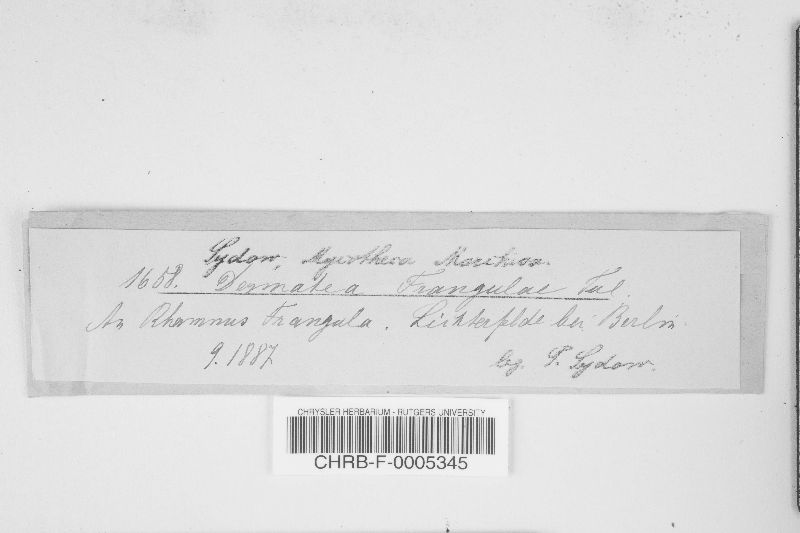 Sydow, Mycotheca Marchica.
1658. Dermatea Frangulae Tul.
An Rhamnus Frangula. Lichterfelde bei Berlin.
9.1887 leg. P. Sydow.
CHRYSLER HERBARIUM - RUTGERS UNIVERSITY
CHRB-F-0005345